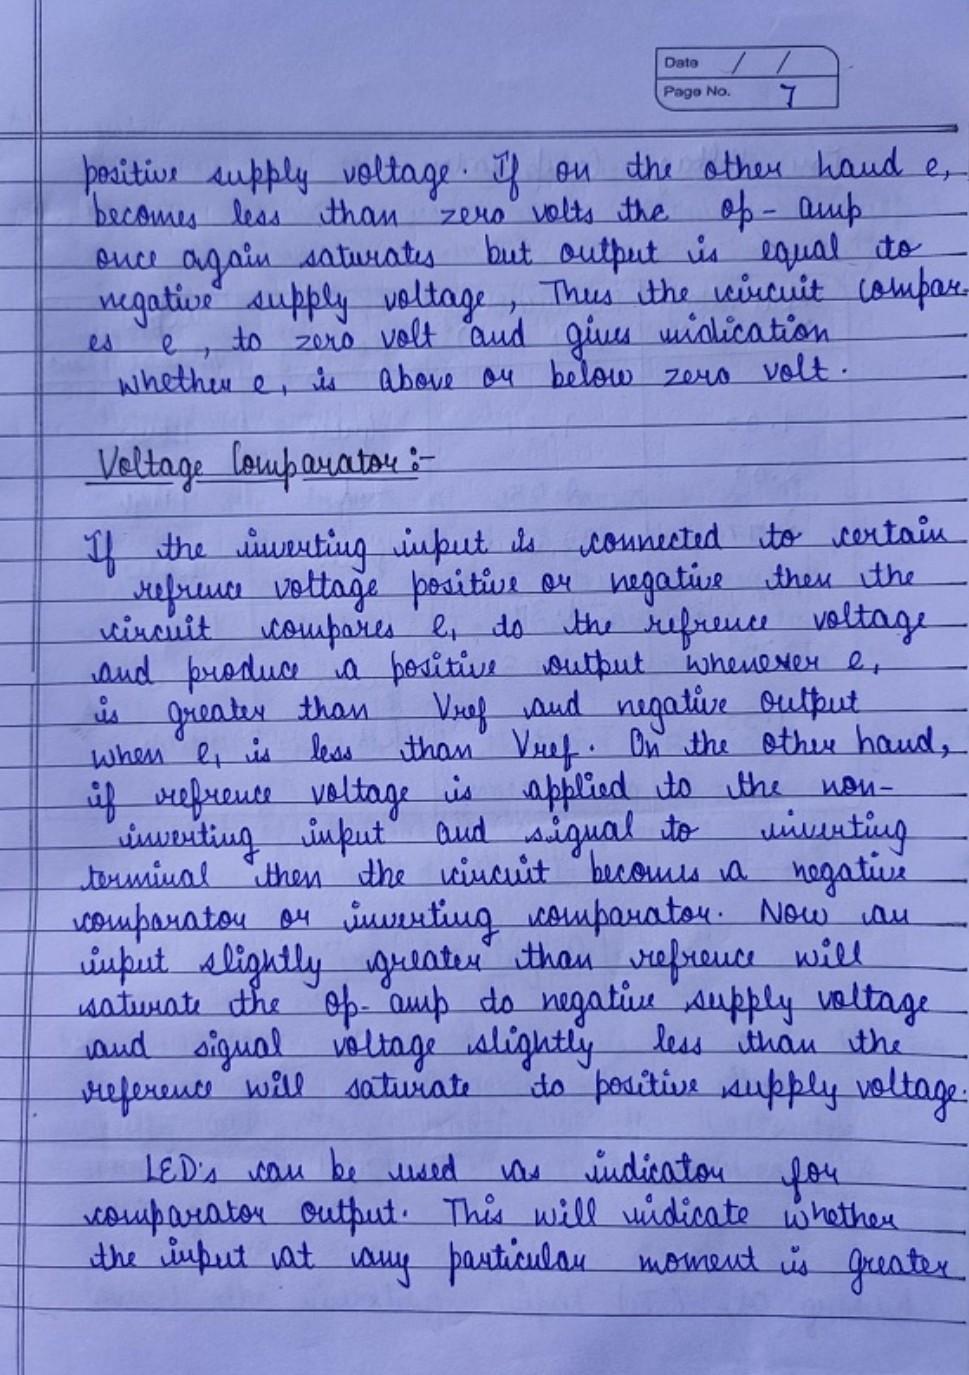 Date / /
Page No. 7
positive supply voltage. If on the other hand e,
becomes less than zero volts the op-amp
once again saturates but output is equal to
negative supply voltage, Thus the circuit compar-
es e, to zero volt and gives indication
whether e, is above or below zero volt.
Voltage Comparator :-
If the inverting input is connected to certain
refrence voltage positive or negative then the
circuit compares e, to the refrence voltage
and produce a positive output whenever e,
is greater than Vref and negative output
when e, is less than Vref. On the other hand,
if refrence voltage is applied to the non-
inverting input and signal to inverting
terminal then the circuit becomes a negative
comparator or inverting comparator. Now an
input slightly greater than refrence will
saturate the op-amp to negative supply voltage
and signal voltage slightly less than the
reference will saturate to positive supply voltage.
LED's can be used as indicator for
comparator output. This will indicate whether
the input at any particular moment is greater